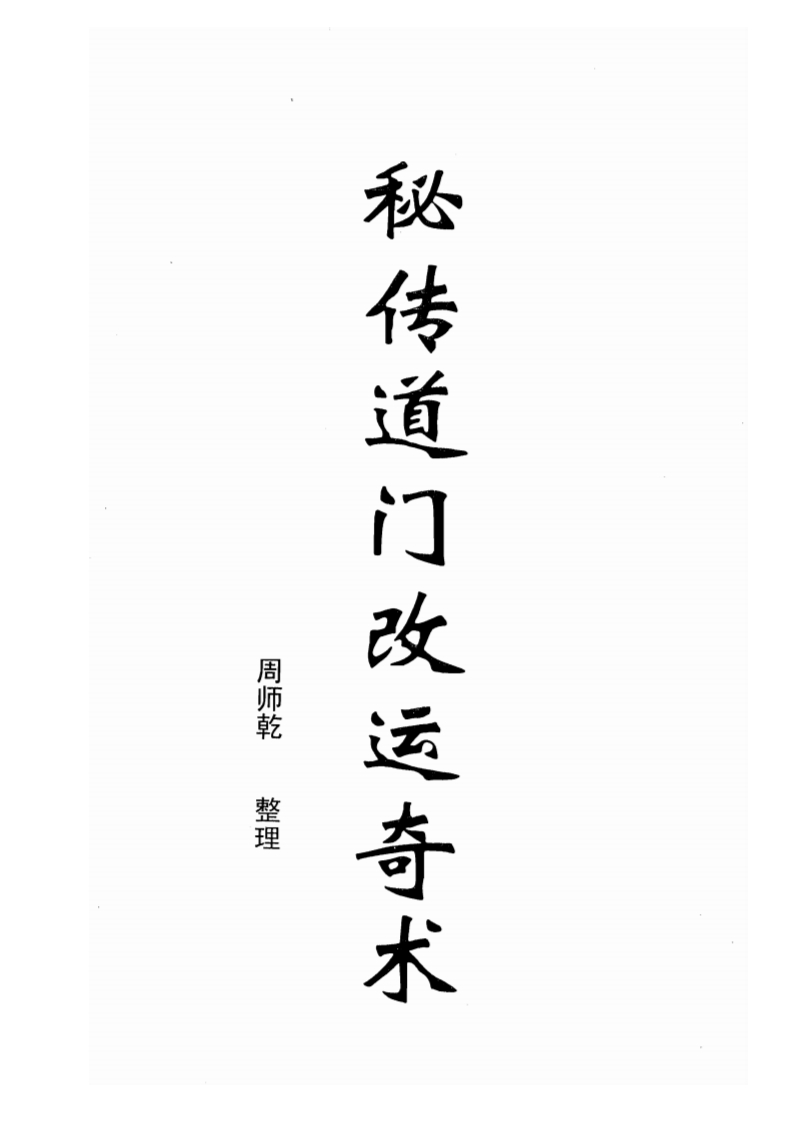 秘传道门改运奇术
周师乾 整理